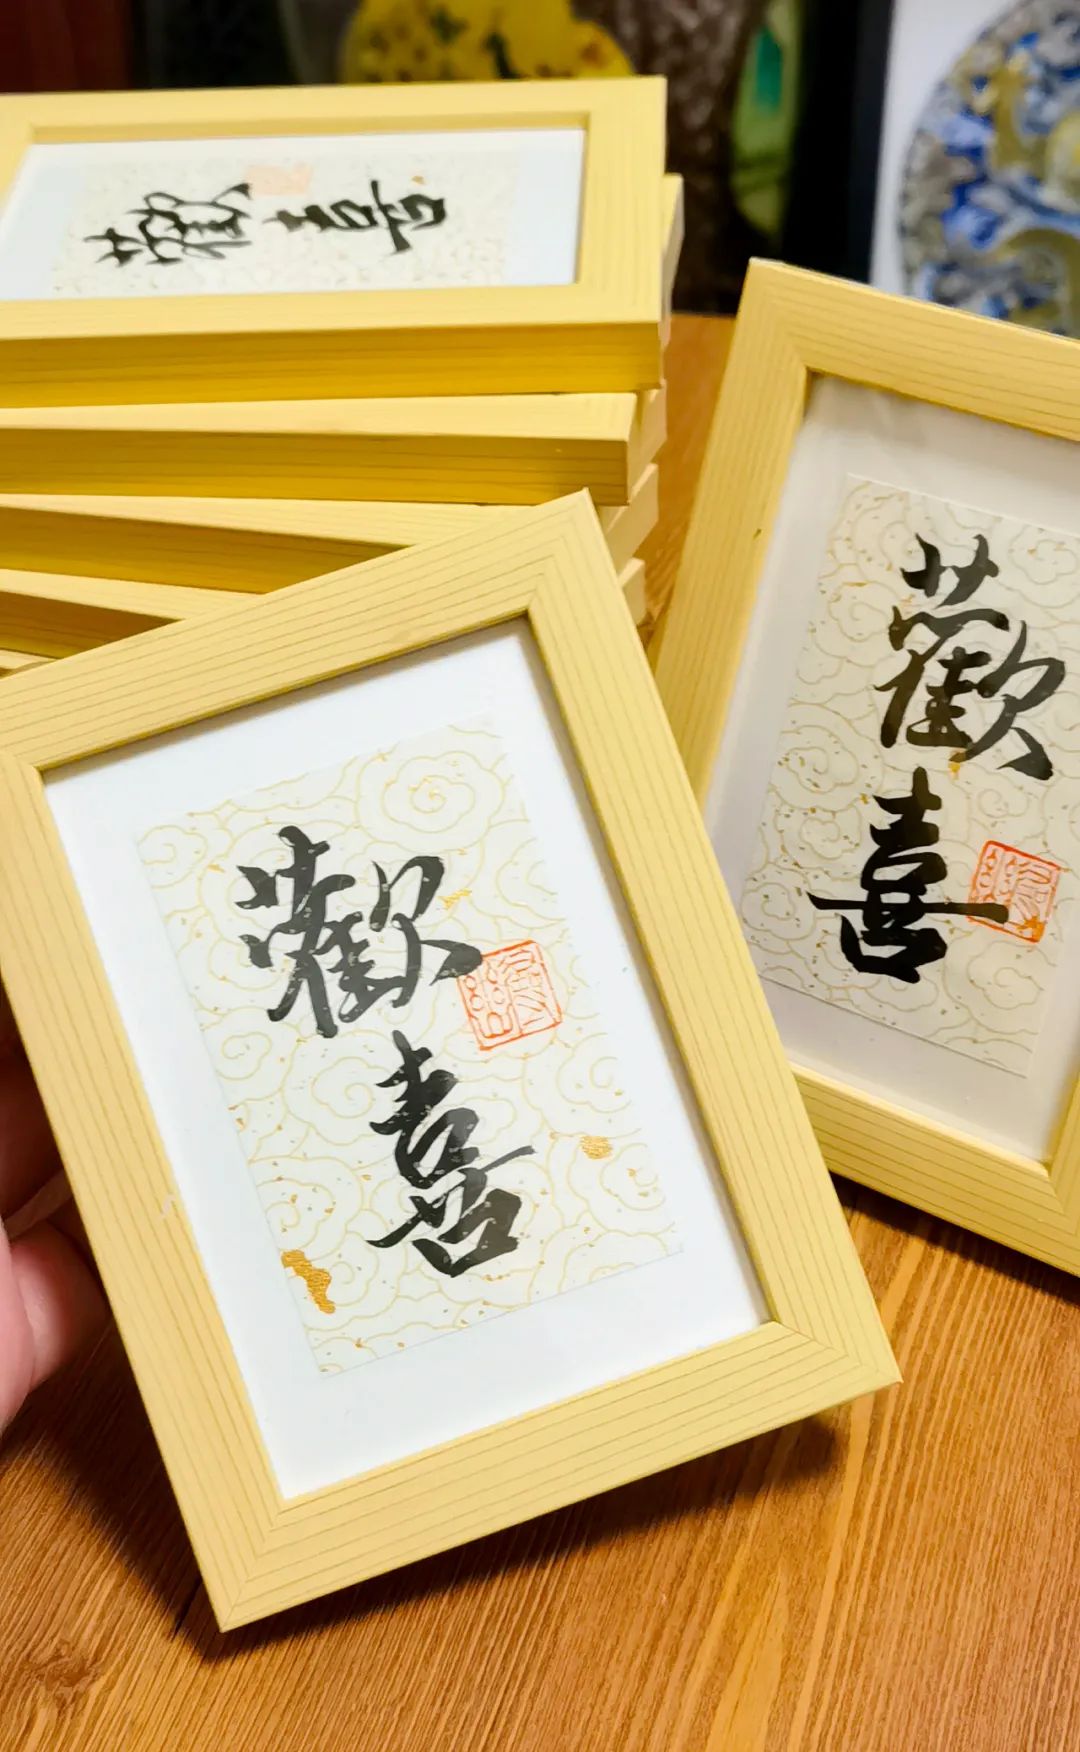 歡
喜
歡
喜
歡喜